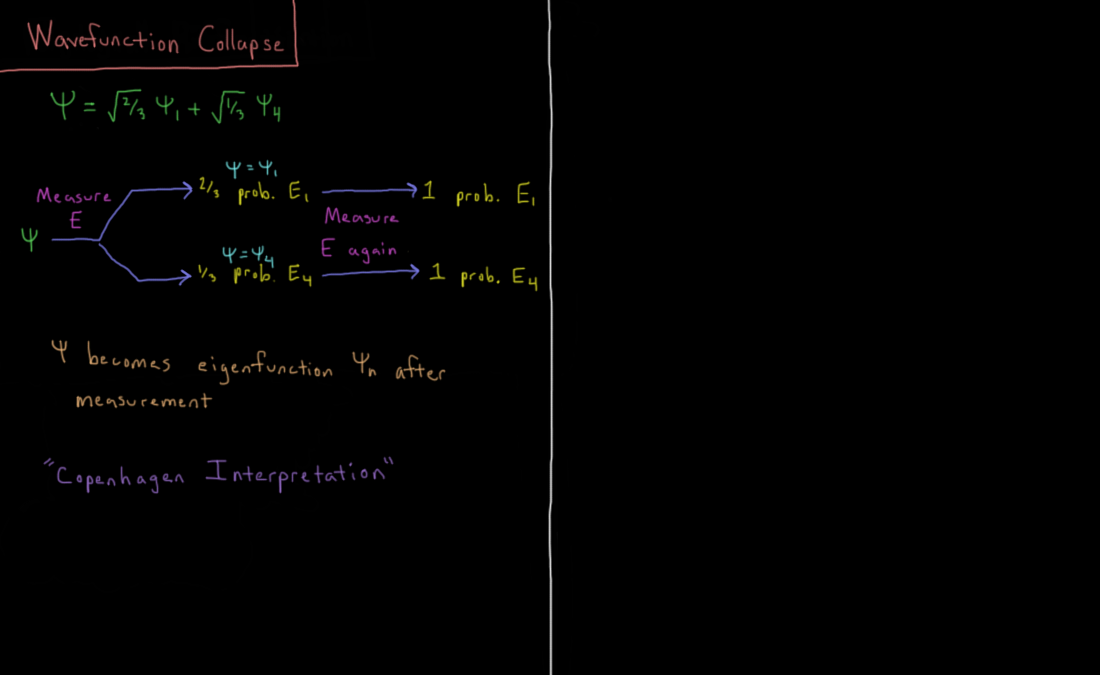 Wavefunction Collapse
Ψ = √2/3 Ψ₁ + √1/3 Ψ₄
Ψ = Ψ₁
Measure
E
2/3 prob. E₁
1 prob. E₁
Measure
E again
Ψ
Ψ = Ψ₄
1/3 prob. E₄
1 prob. E₄
Ψ becomes eigenfunction Ψₙ after
measurement
"Copenhagen Interpretation"